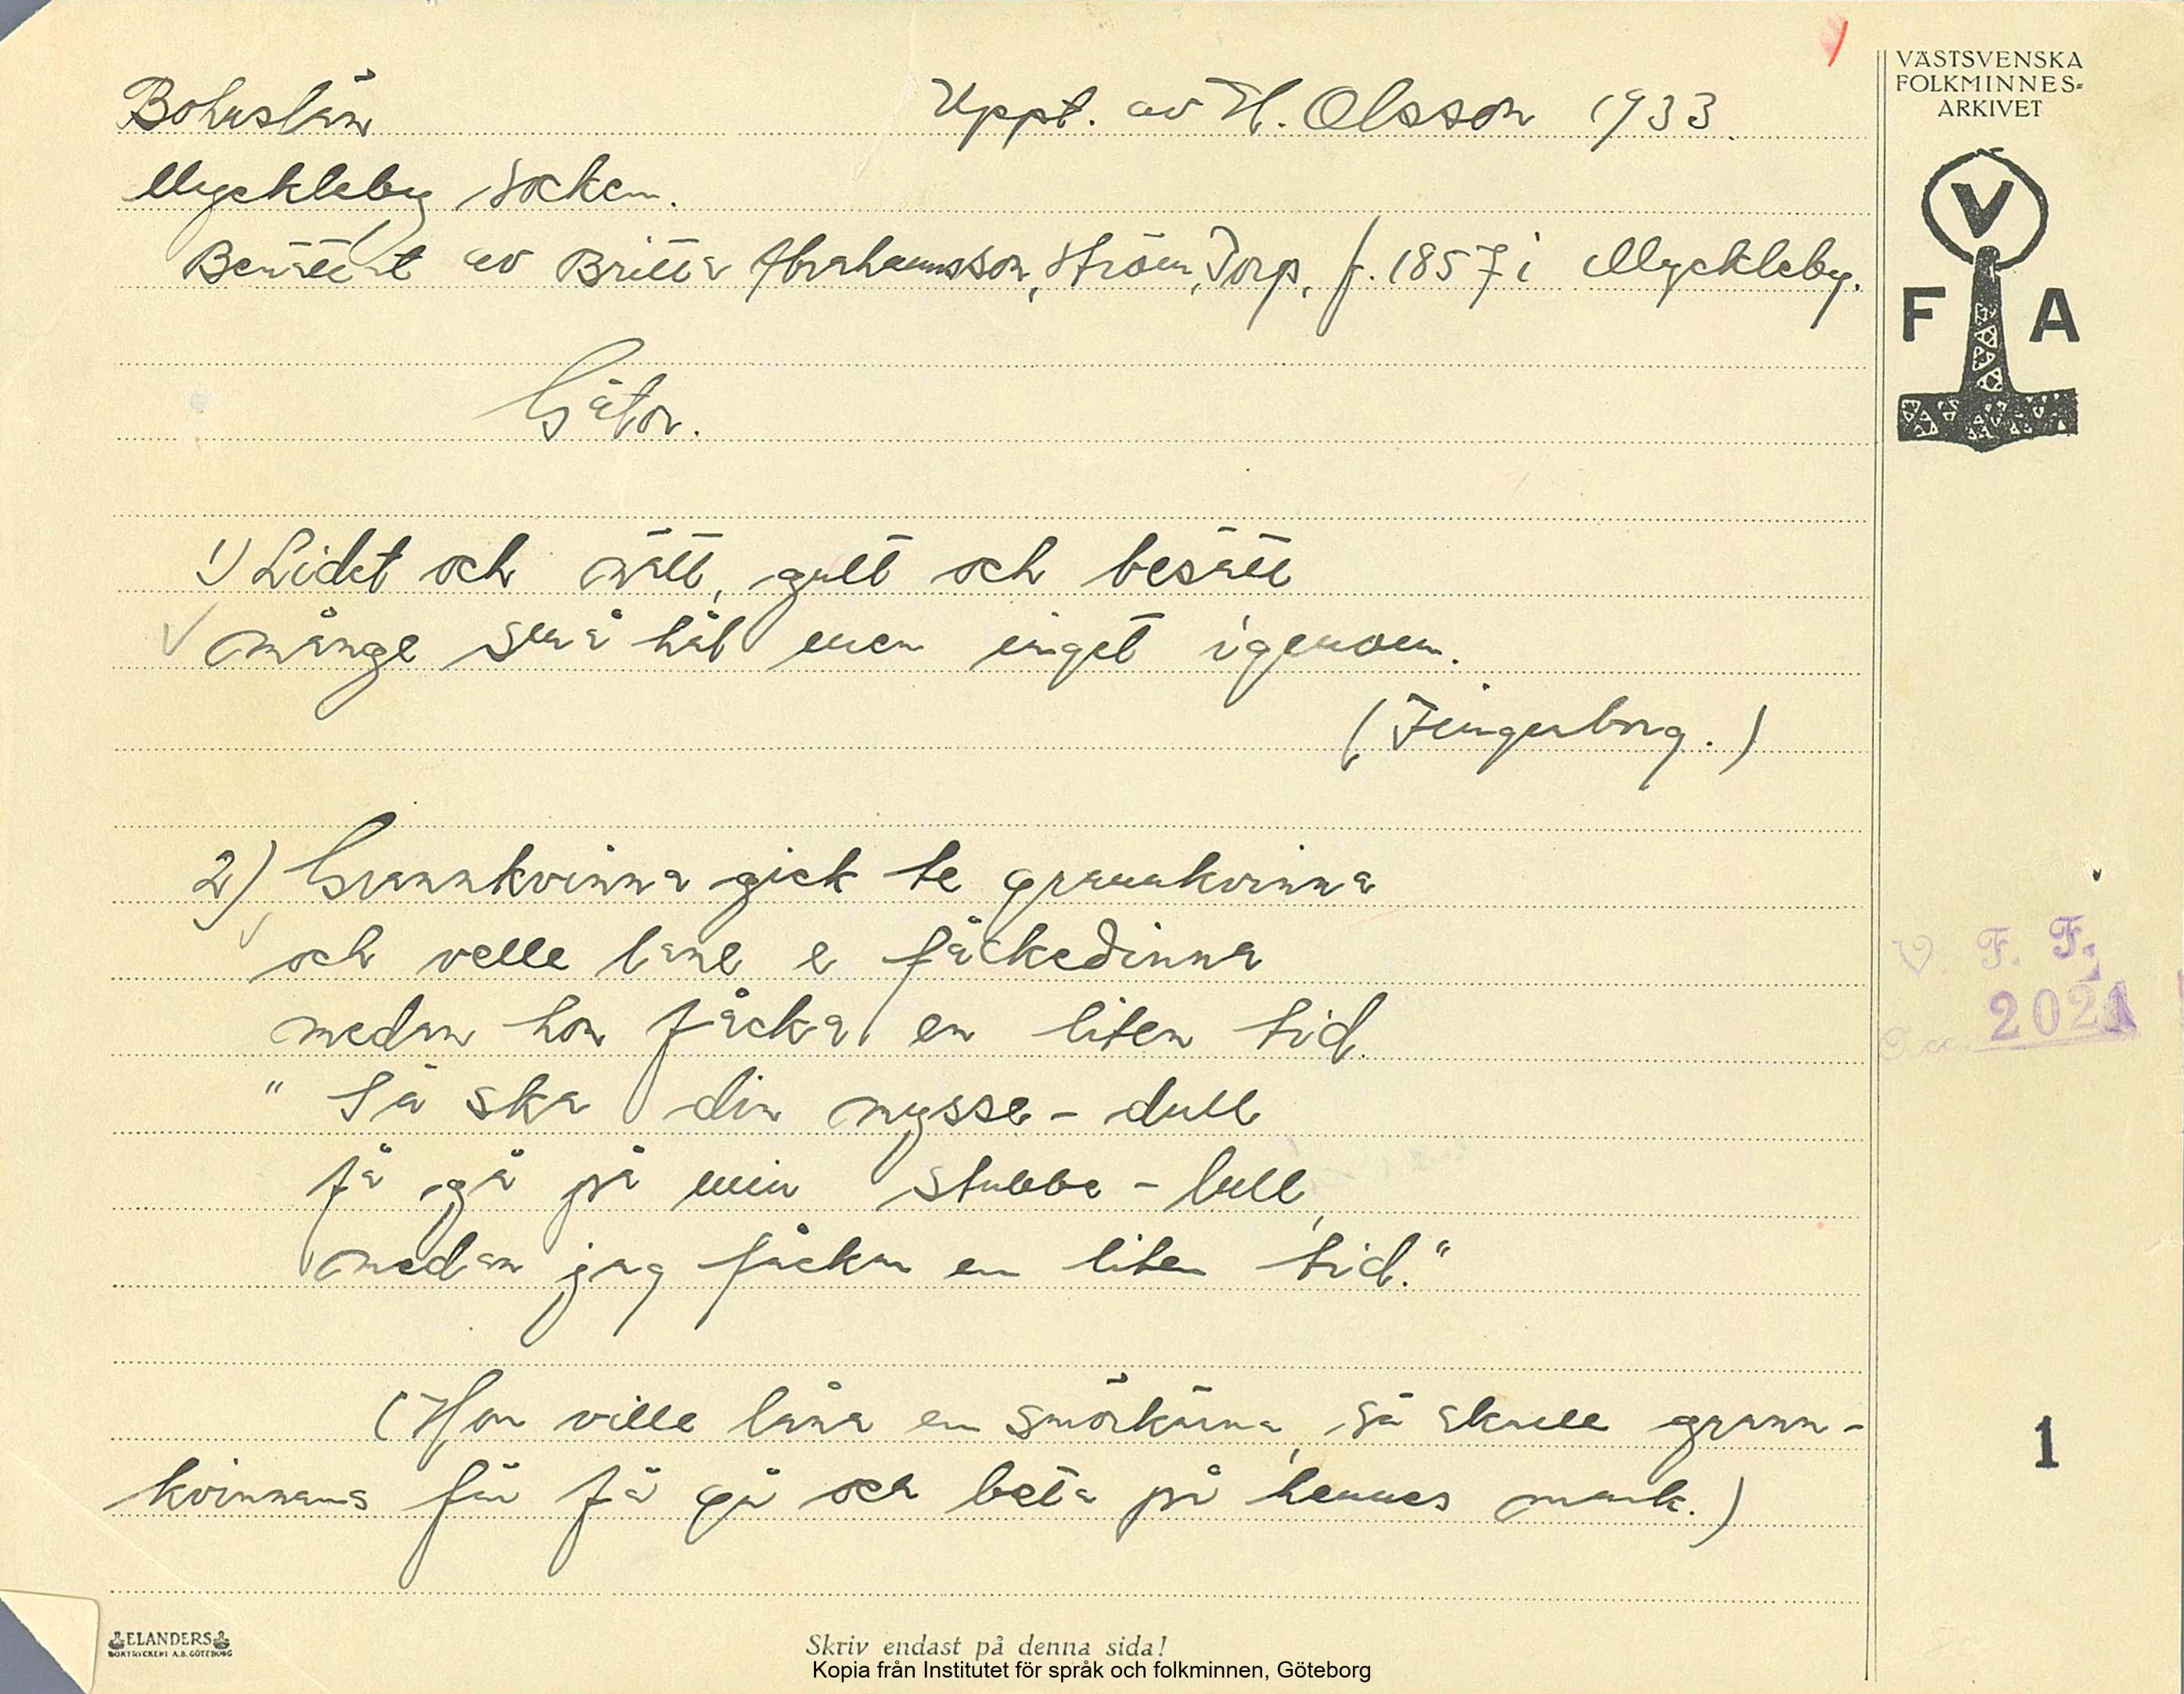 Bohuslän
Uppt. av H. Olsson 1933.
Myckleby socken.
Berättat av Britta Abrahamsson, Ström, Torp, f. 1857 i Myckleby.
Gåtor.
1) Lidet och nätt, gult och besätt
många små hål men inget igenom.
(Fingerborg.)
2) Grannkvinna gick te grannkvinna
och velle låne e fåckedinna
medan hon fåcka en liten tid.
" Så ska din nysse-dull
få gå på min stubbe-lull,
medan jag fåckar en liten tid."
(Hon ville låna en smörkärna, så skulle grann-
kvinnans får få gå och beta på hennes mark.)
VÄSTSVENSKA
FOLKMINNES-
ARKIVET
V
F A
V. F. F.
Acc. 2021
1
ELANDERS
BOKTRYCKERI A.B. GÖTEBORG
Skriv endast på denna sida!
Kopia från Institutet för språk och folkminnen, Göteborg